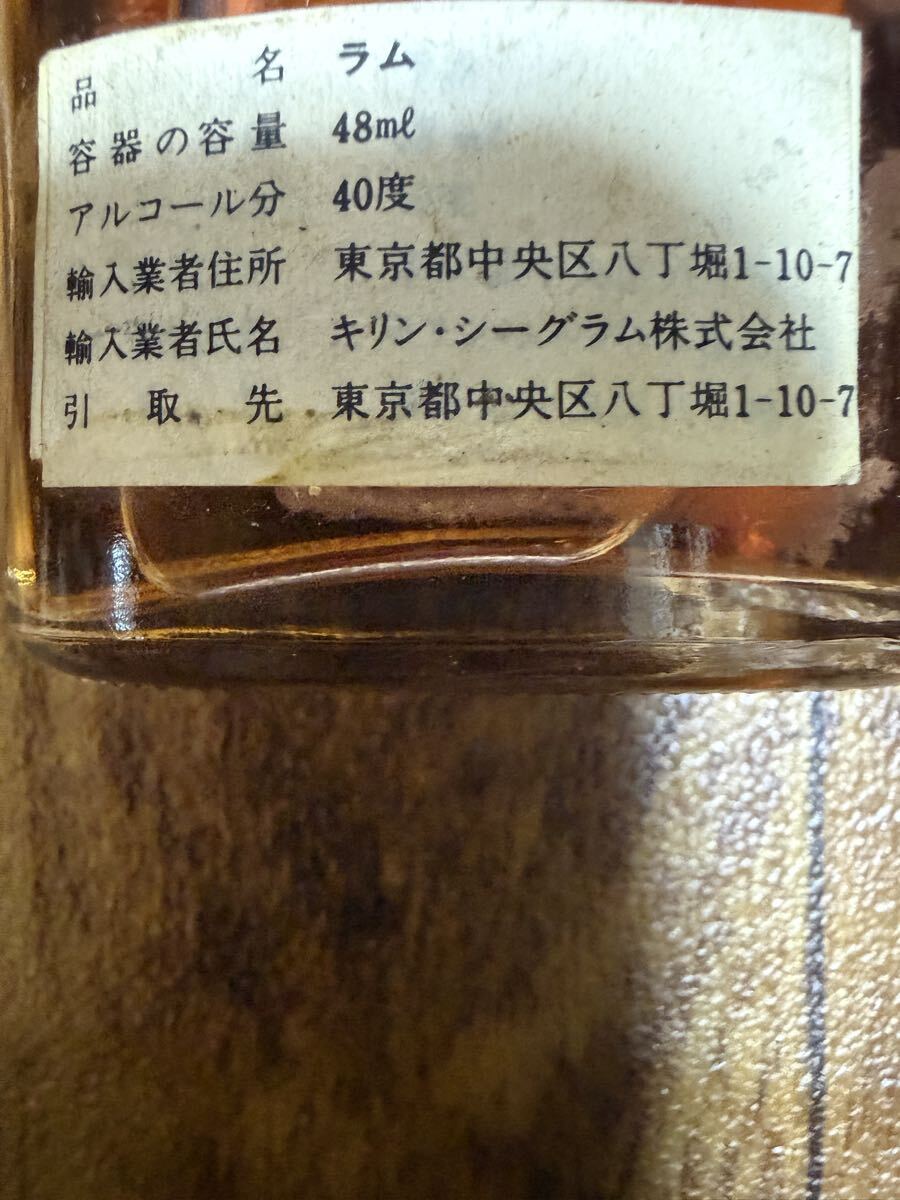 品名 ラム
容器の容量 48ml
アルコール分 40度
輸入業者住所 東京都中央区八丁堀1-10-7
輸入業者氏名 キリン・シーグラム株式会社
引取先 東京都中央区八丁堀1-10-7